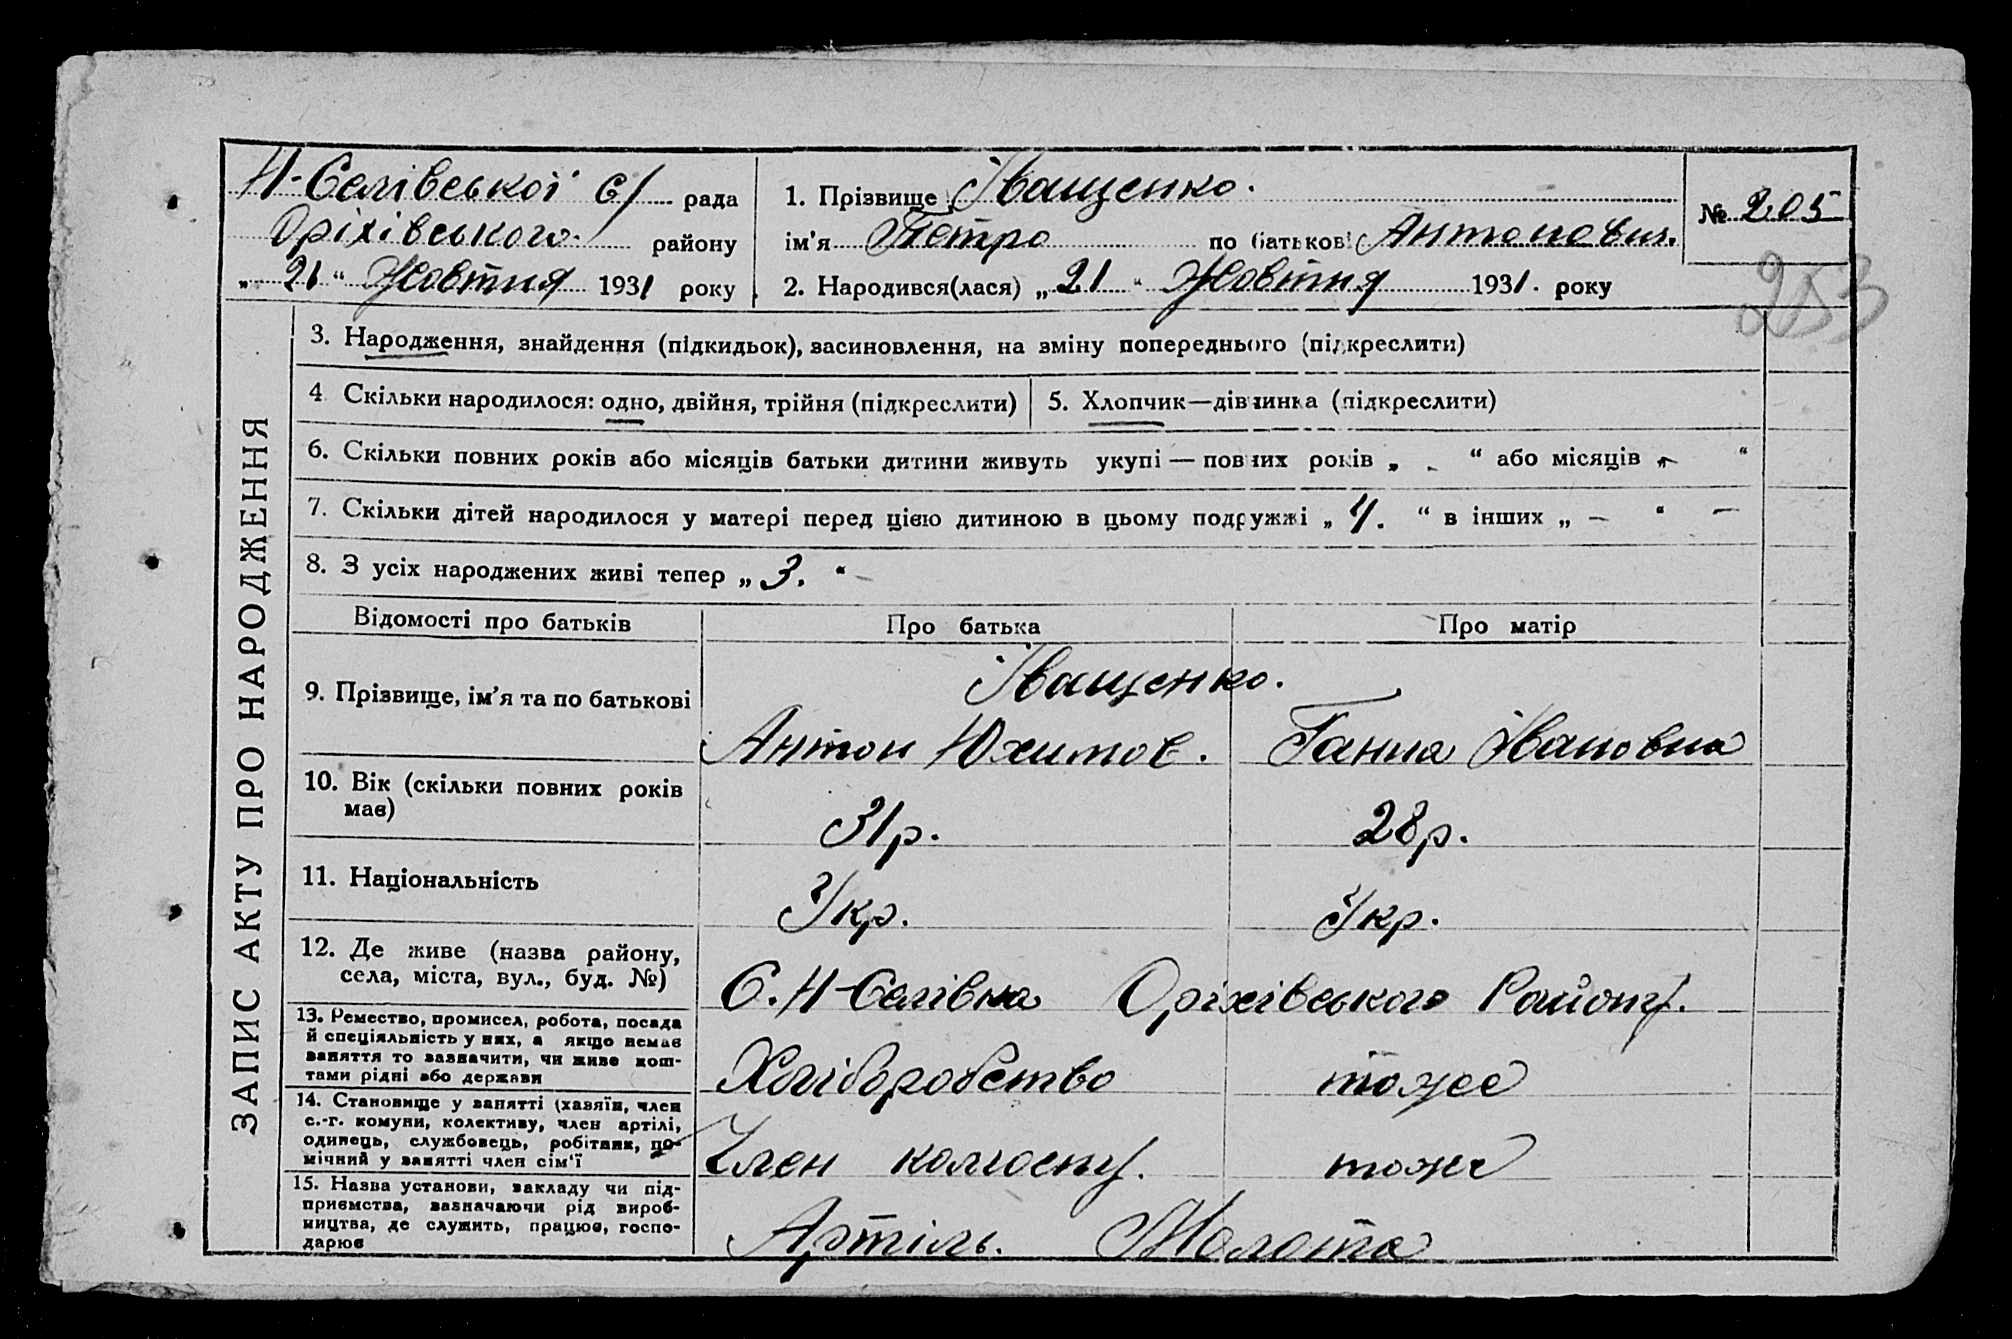 Н-Селівської С/ рада
Оріхівського району
„ 21 “ Жовтня 1931 року
1. Прізвище Іващенко.
ім'я Петро по батькові Антонович.
2. Народився(лася) „ 21 “ Жовтня 1931. року
№ 205
253
ЗАПИС АКТУ ПРО НАРОДЖЕННЯ
3. Народження, знайдення (підкидьок), засиновлення, на зміну попереднього (підкреслити)
4 Скільки народилося: одно, двійня, трійня (підкреслити)
5. Хлопчик—дівчинка (підкреслити)
6. Скільки повних років або місяців батьки дитини живуть укупі — повних років „ - “ або місяців „ - “
7. Скільки дітей народилося у матері перед цією дитиною в цьому подружжі „ 4. “ в інших „ — “ —
8. З усіх народжених живі тепер „ 3. “ –
Відомості про батьків Про батька Про матір
Іващенко.
9. Прізвище, ім'я та по батькові
Антон Юхимов. Ганна Івановна
10. Вік (скільки повних років
має)
31р. 28р.
11. Національність
Укр. Укр.
12. Де живе (назва району,
села, міста, вул., буд. №)
С. Н-Селівка Оріхівського Району.
13. Ремество, промисел, робота, посада
й спеціяльність у них, а якщо немає
заняття то зазначити, чи живе кош-
тами рідні або держави
Хліборобство тоже
14. Становище у занятті (хазяїн, член
с.-г. комуни, колективу, член артілі,
одинець, службовець, робітник, по-
мічний у занятті член сім'ї
Член колгоспу. тоже
15. Назва установи, закладу чи під-
приємства, зазначаючи рід вироб-
ництва, де служить, працює, госпо-
дарює
Артіль. Молота